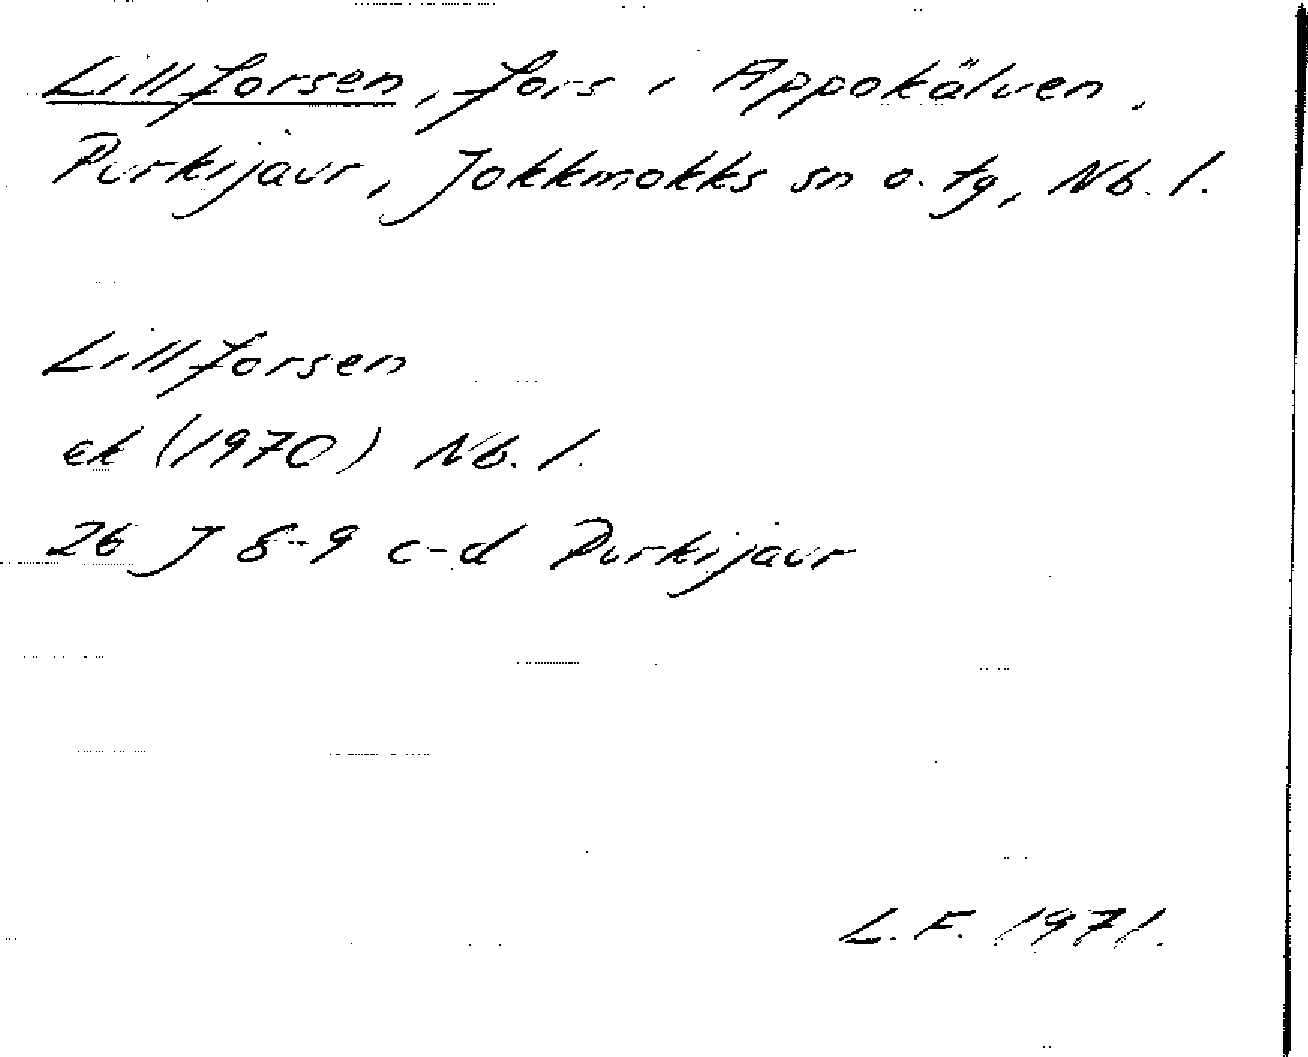 Lillforsen, fors i Appokälven,
Purkijaur, Jokkmokks sn o. tg, Nb. l.
Lillforsen
ek (1970) Nb. l.
26 J 8-9 c-d Purkijaur
L.F. 1971.